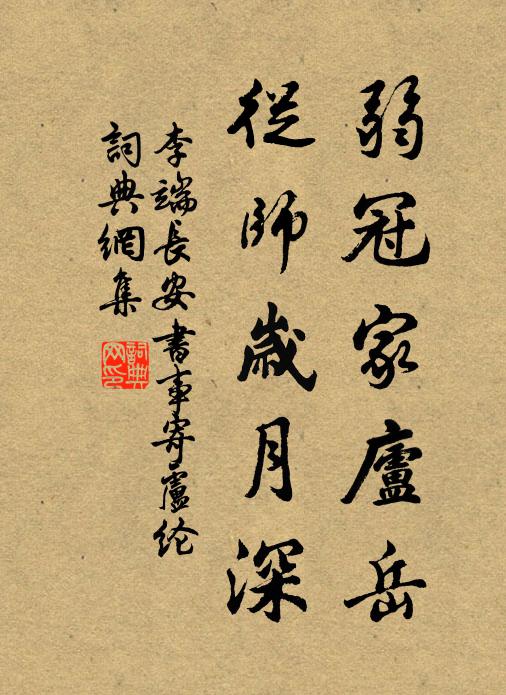 弱冠家廬岳
從師歲月深
李端長安書事寄盧纶
詞典網集
詞典网印